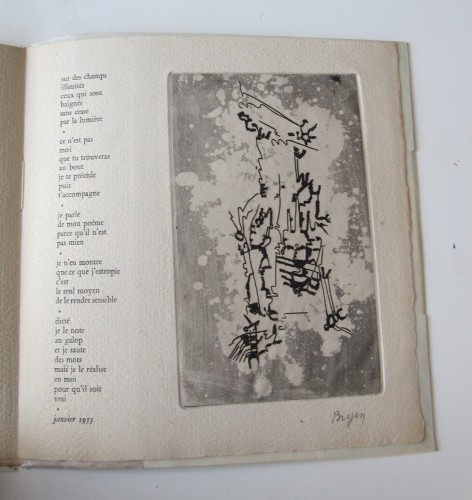 sur des champs
illimités
ceux qui sont
baignés
sans cesse
par la lumière
*
ce n'est pas
moi
que tu trouveras
au bout
je te précède
puis
t'accompagne
*
je parle
de mon poème
parce qu'il n'est
pas mien
*
je n'en montre
que ce que j'estropie
c'est
le seul moyen
de le rendre sensible
*
dicté
je le note
au galop
et je saute
des mots
mais je le réalise
en moi
pour qu'il soit
vrai
*
janvier 1955
Bryen